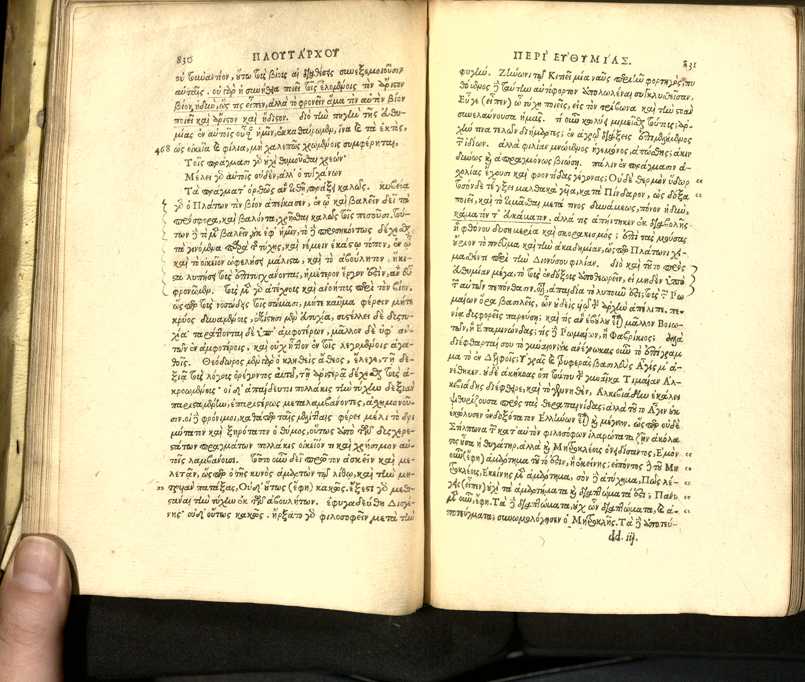 830 ΠΛΟΥΤΑΡΧΟΥ
οὐ τοὐναντίον, οὕτω τοῖς βίοις αἱ διαθέσεις συνεξομοιοῦσιν
αὑταῖς. οὐ γὰρ ἡ συνήθεια ποιεῖ τοῖς ἑλομένοις τὸν ἄριστον
βίον, ἡδίω, ὥς τις εἶπεν, ἀλλὰ τὸ φρονεῖν ἅμα τὸν αὐτὸν βίον
ποιεῖ καὶ ἄριστον καὶ ἥδιστον. διὸ τὴν πηγὴν τῆς εὐθυ-
μίας ἐν αὑτοῖς οὖσαν ἡμῖν, ἐκκαθαίρωμεν, ἵνα καὶ τὰ ἐκτὸς,
468 ὡς οἰκεῖα καὶ φίλια, μὴ χαλεπῶς χρωμένοις συμφέρηται.
Τοῖς πράγμασι γὰρ οὐχὶ θυμοῦσθαι χρεών·
Μέλει γὰρ αὐτοῖς οὐδέν. ἀλλ' ὁ τυγχάνων
Τὰ πράγματ' ὀρθῶς ἂν τιθῇ πράξει καλῶς. κυβεία
γὰρ ὁ Πλάτων τὸν βίον ἀπείκασεν, ἐν ᾧ καὶ βαλεῖν δεῖ τὰ
πρόσφορα, καὶ βαλόντα, χρῆσθαι καλῶς τοῖς πεσοῦσι. τού-
των δὲ τὸ μὲν βαλεῖν, οὐκ ἐφ' ἡμῖν, τὸ δὲ προσηκόντως δέχεσθαι
τὰ γινόμενα παρὰ τῆς τύχης, καὶ νέμειν ἑκάστῳ τόπον, ἐν ᾧ
καὶ τὸ οἰκεῖον ὠφελήσει μάλιστα, καὶ τὸ ἀβούλητον, ἥκι-
στα λυπήσει τοὺς ἐπιτυγχάνοντας, ἡμέτερον ἔργον ἐστὶν, ἂν εὖ
φρονῶμεν. τοὺς μὲν γὰρ ἀτέχνους καὶ ἀνοήτους περὶ τὸν βίον,
ὥσπερ τοὺς νοσώδεις τοῖς σώμασι, μήτε καῦμα φέρειν μήτε
κρύος δυναμένους, ἐξίστησι μὲν εὐτυχία, συστέλλει δὲ δυςτυ-
χία· ταράττονται δὲ ὑπ' ἀμφοτέρων, μᾶλλον δὲ ὑφ' αὑ-
τῶν ἐν ἀμφοτέροις, καὶ οὐχ ἧττον ἐν τοῖς λεγομένοις ἀγα-
θοῖς. Θεόδωρος μὲν γὰρ ὁ κληθεὶς ἄθεος, ἔλεγε, τῇ δε-
ξιᾷ τοὺς λόγους ὀρέγοντος αὐτοῦ, τῇ ἀριστερᾷ δέχεσθαι τοὺς ἀ-
κροωμένους· οἱ δ' ἀπαίδευτοι πολλάκις τὴν τύχην δεξιὰν
παρισταμένην, ἐπαρίστερα μεταλαμβάνοντες, ἀσχημονοῦ-
σιν. οἱ δὲ φρόνιμοι, καθάπερ ταῖς μελίτταις φέρει μέλι τὸ δρι-
μύτατον καὶ ξηρότατον ὁ θύμος, οὕτως ἀπὸ τῶν δυςχερε-
στάτων πραγμάτων πολλάκις οἰκεῖόν τι καὶ χρήσιμον αὑ-
τοῖς λαμβάνουσι. τοῦτο οὖν δεῖ πρῶτον ἀσκεῖν καὶ με-
λετᾶν, ὥσπερ ὁ τῆς κυνὸς ἁμαρτὼν τῷ λίθῳ, καὶ τὴν μη-
τρυιὰν πατάξας, Οὐδ' οὕτως (ἔφη) κακῶς. ἔξεστι γὰρ μεθι-
στάναι τὴν τύχην ἐκ τῶν ἀβουλήτων. ἐφυγαδεύθη Διογέ-
νης· οὐδ' οὕτως κακῶς. ἤρξατο γὰρ φιλοσοφεῖν μετὰ τὴν
ΠΕΡΙ ΕΥΘΥΜΙΑΣ. 831
φυγήν. Ζήνωνι τῷ Κιτιεῖ μία ναῦς περιῆν φορτηγός, πυ
θόμενος δὲ ταύτην αὐτόφορτον ἀπολωλέναι συγκλυσθεῖσαν,
Εὖγε (εἶπεν) ὦ τύχη ποιεῖς, εἰς τὸν τρίβωνα καὶ τὴν στοὰν
συνελαύνουσα ἡμᾶς. τί οὖν κωλύει μιμεῖσθαι τούτους; ἀρ-
χήν τινα τελῶν διήμαρτες; ἐν ἀγρῷ διάξεις ἐπιμελόμενος
τῶν ἰδίων. ἀλλὰ φιλίαν μνώμενος ἡγεμόνος, ἀπώσθης; ἀκιν
δύνως καὶ ἀπραγμόνως βιώσῃ. πάλιν ἐν πράγμασιν ἀ-
σχολίας ἔχουσι καὶ φροντίδας γέγονας; Οὐδὲ θερμὸν ὕδωρ
τόσον δὲ τέγξει μαλθακὰ γυῖα, κατὰ Πίνδαρον, ὡς δόξα
ποιεῖ, καὶ τὸ τιμᾶσθαι μετά τινος δυνάμεως, πόνον ἡδὺν,
κάματόν τ' εὐκάματον. ἀλλά τις ἀπήντησεν ἐκ διαβολῆς
ἢ φθόνου δυσημερία καὶ σκορακισμός; ἐπὶ τὰς μούσας
οὔριον τὸ πνεῦμα καὶ τὴν ἀκαδημίαν, ὥσπερ Πλάτωνι χει-
μασθέντι περὶ τὴν Διονυσίου φιλίαν. διὸ καὶ τοῦτο πρὸς
εὐθυμίαν μέγα, τὸ τοὺς ἐνδόξους ἀποθεωρεῖν, εἰ μηδὲν ὑπὸ
τῶν αὐτῶν πεπόνθασιν. οἷον, ἀπαιδία τὸ λυποῦν ἐστι; τοὺς τῶν Ῥω
μαίων ὅρα βασιλεῖς, ὧν οὐδεὶς υἱῷ τὴν ἀρχὴν ἀπέλιπε. πε-
νία δυσφορεῖς παρούσῃ; καὶ τίς ἂν ἐβούλου εἶναι μᾶλλον Βοιω-
τῶν, ἢ Ἐπαμινώνδας; τίς δὲ Ῥωμαίων, ἢ Φαβρίκιος; ἀλλὰ
διέφθαρταί σου τὸ γύναιον; οὐκ ἀνέγνωκας οὖν τὸ ἐπίγραμ
μα τὸ ἐν Δελφοῖς; Ὑγρᾶς καὶ τραφερᾶς βασιλεὺς Ἆγίς μ' ἀ-
νέθηκεν. οὐδὲ ἀκήκοας ὅτι τούτου τὴν γυναῖκα Τιμαίαν Ἀλ-
κιβιάδης διέφθειρε, καὶ τὸ γεννηθὲν, Ἀλκιβιάδην ἐκάλει
ψιθυρίζουσα πρὸς τὰς θεραπαινίδας; ἀλλὰ τοῦτο Ἆγιν οὐκ
ἐκώλυσεν ἐνδοξότατον Ἑλλήνων εἶναι καὶ μέγιστον. ὥσπερ οὐδὲ
Στίλπωνα τῶν κατ' αὐτὸν φιλοσόφων ἱλαρώτατα ζῆν ἀκόλα-
στος οὖσα ἡ θυγάτηρ. ἀλλὰ καὶ Μητροκλέους ὀνειδίσαντος, Ἐμὸν
οὖν (ἔφη) ἁμάρτημα τοῦτό ἐστιν, ἢ ἐκείνης; εἰπόντος δὲ τοῦ Μη-
τροκλέους, Ἐκείνης μὲν ἁμάρτημα, σὸν δὲ ἀτύχημα, Πῶς λέ-
γεις (εἶπεν) οὐχὶ τὰ ἁμαρτήματα καὶ διαπτώματά ἐστι; Πάνυ
μὲν οὖν, ἔφη. Τὰ δὲ διαπτώματα, οὐχ ὧν διαπτώματα, καὶ ἀ-
ποτεύγματα; συνωμολόγησεν ὁ Μητροκλῆς. Τὰ δὲ ἀποτεύ-
dd. iij.